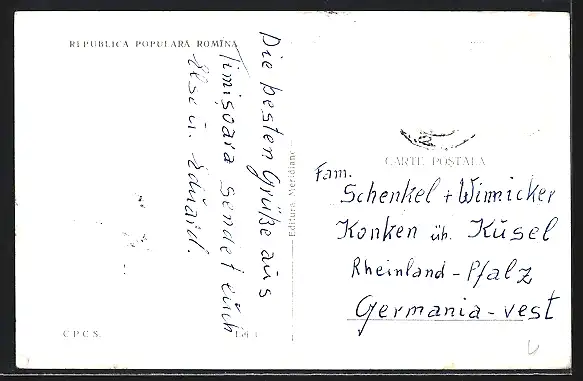 REPUBLICA POPULARĂ ROMÎNĂ
Die besten Grüße aus
Timișoara sendet euch
Else u. Eduard.
C.P.C.S.
Editura Meridiane
CARTE POȘTALĂ
Fam.
Schenkel + Winnicker
Konken üb. Kusel
Rheinland-Pfalz
Germania-vest